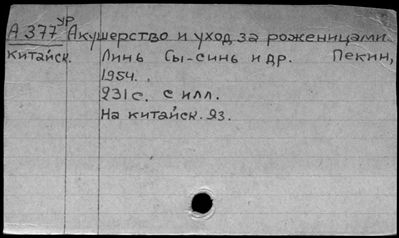 А 377 УР Акушерство и уход за роженицами.
китайск. Линь Сы-синь и др. Пекин,
1954.
231 с. с илл.
На китайск. яз.